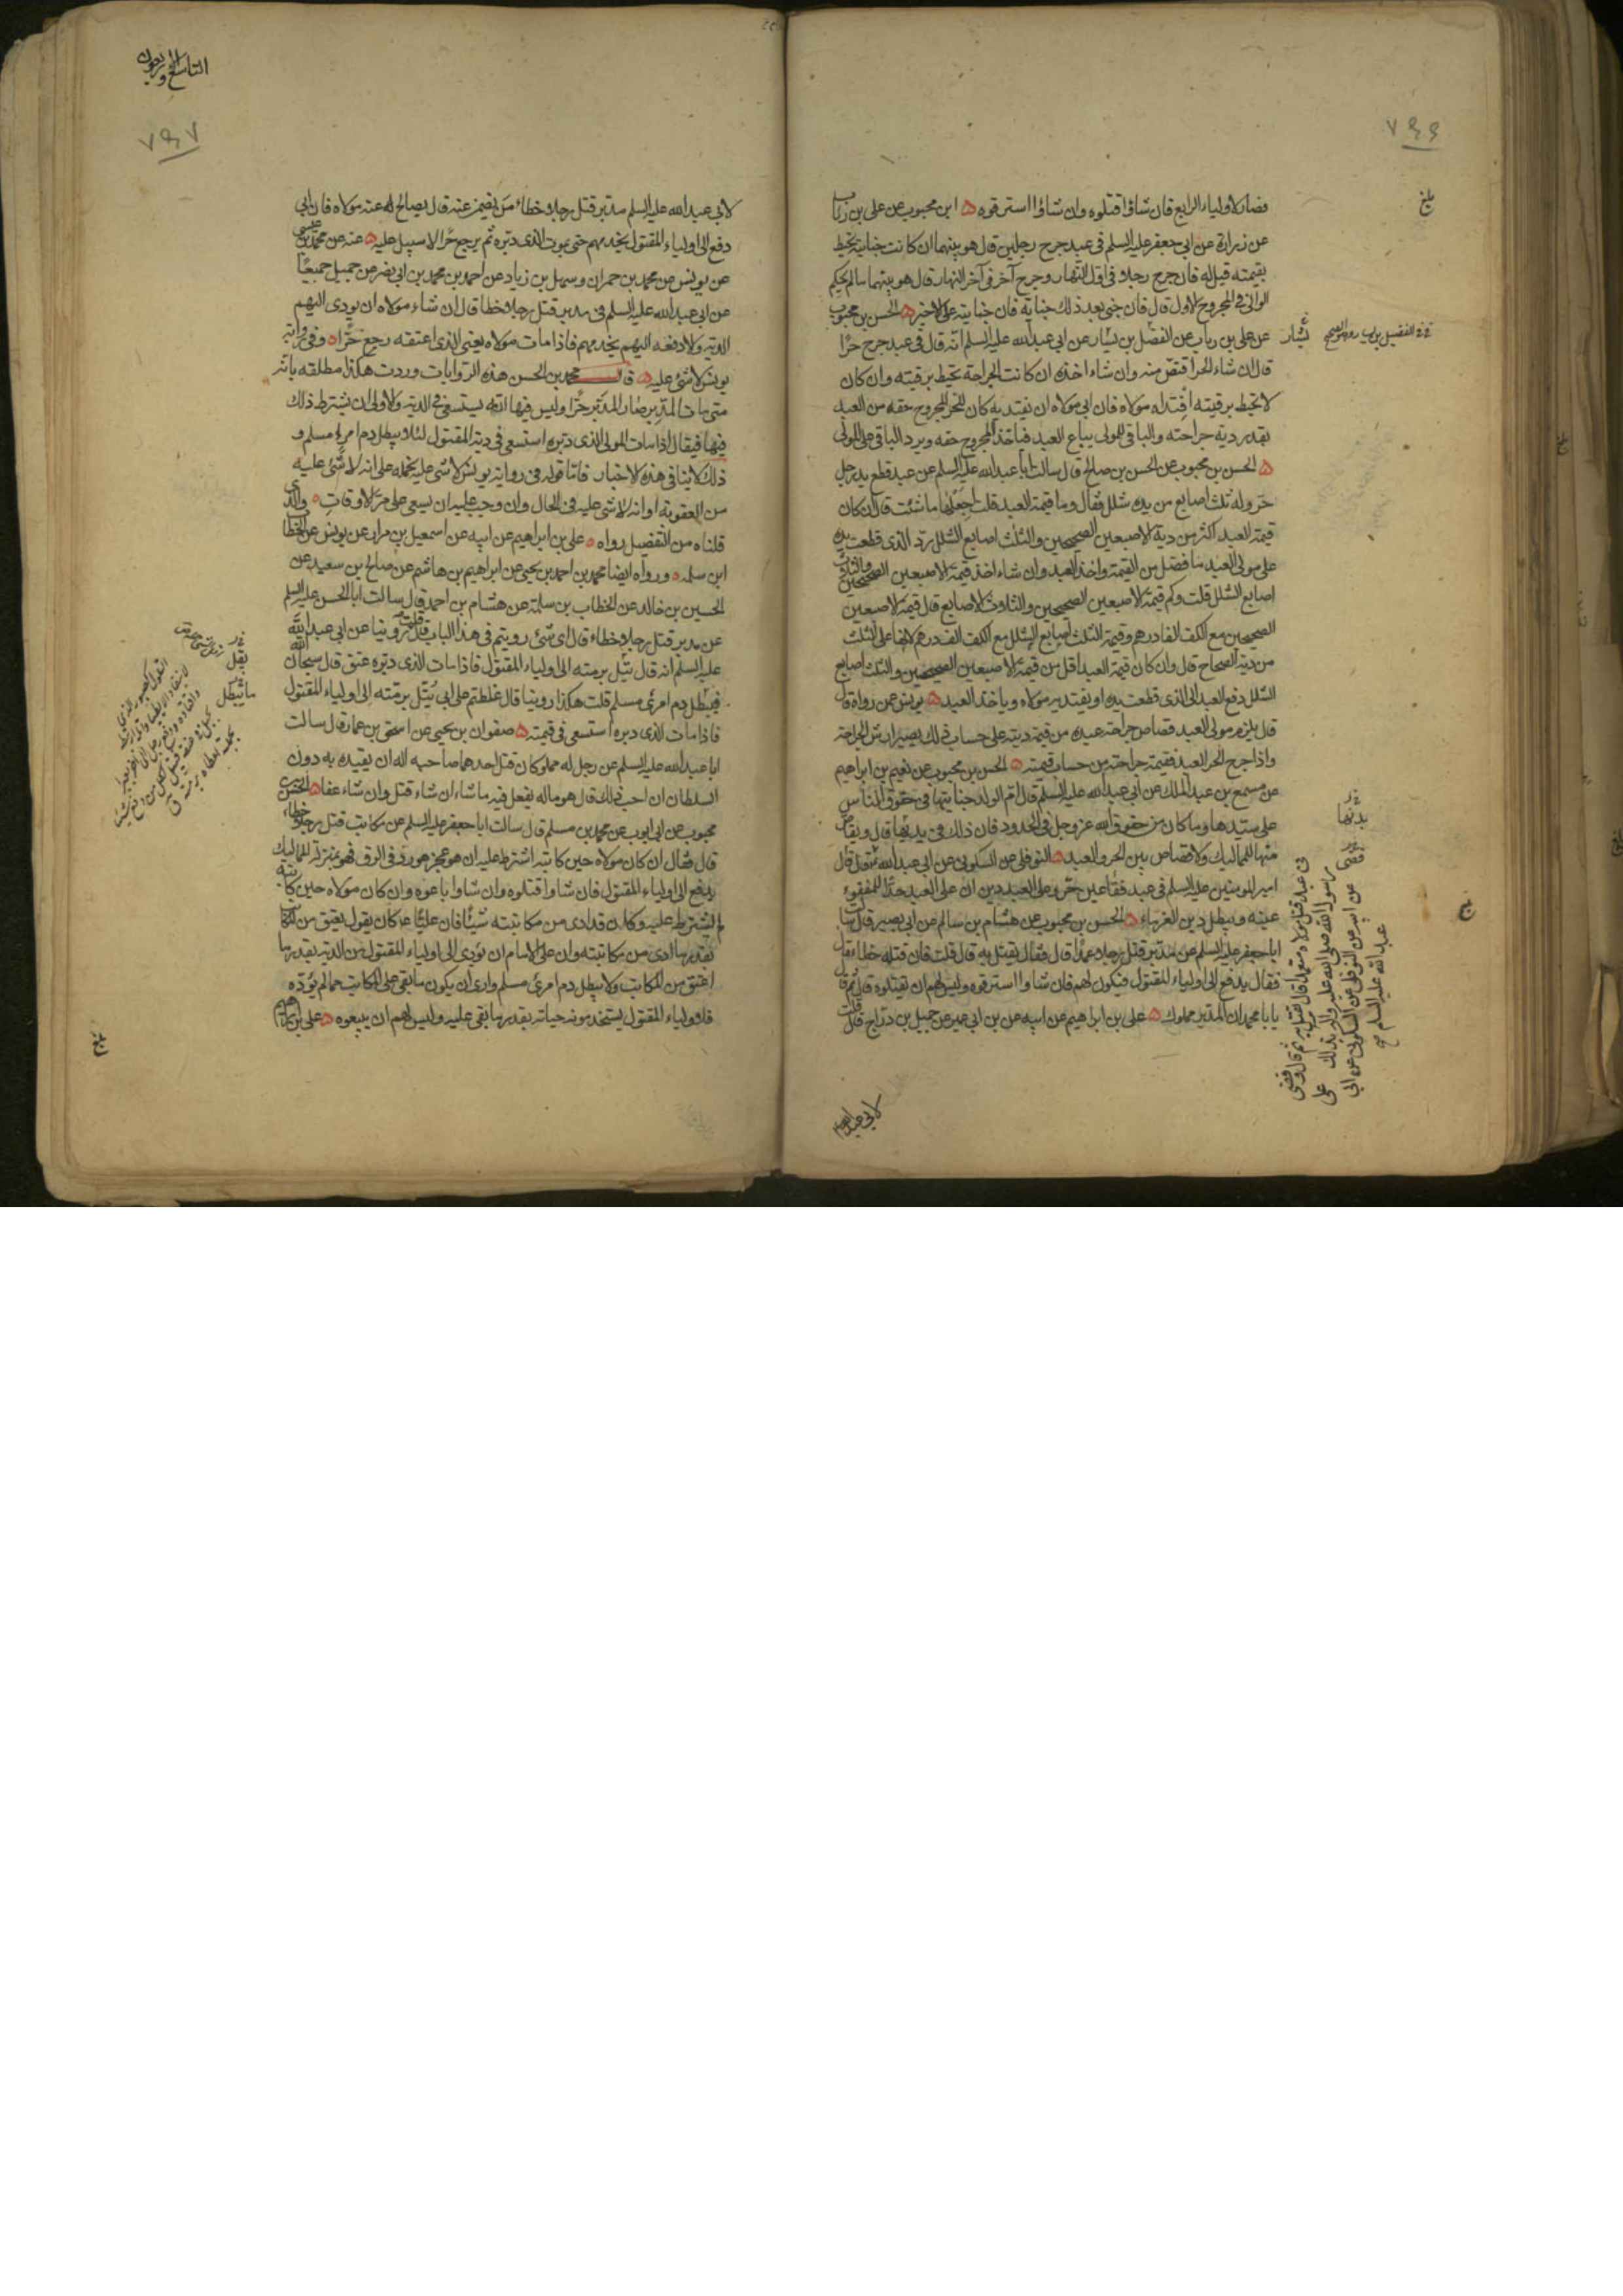 فصار لاولياء الرابع فان شاؤا قتلوه وان شاؤا استرقوه ابن محبوب عن علي بن رئاب
عن زرارة عن ابي جعفر عليه السلم في عبد جرح رجلين قال هو بينهما ان كانت جنايته تحيط
بقيمته قيل له فان جرح رجلا في اول النهار وجرح آخر في آخر النهار قال هو بينهما ما لم يحكم
الوالي في المجروح الاول قال فان جنى بعد ذلك جناية فان جنايته على الاخير الحسن بن محبوب
عن علي بن رئاب عن الفضل بن يسار عن ابي عبد الله عليه السلم انه قال في عبد جرح حرا
قال ان شاء الحر اقتص منه وان شاء اخذه ان كانت الجراحة تحيط برقبته وان كان
لا تحيط برقبته افتداه مولاه فان ابى مولاه ان يفتديه كان للحر المجروح حقه من العبد
بقدر دية جراحته والباقي للمولى يباع العبد فياخذ المجروح حقه ويرد الباقي على المولى
الحسن بن محبوب عن الحسن بن صالح قال سالت ابا عبد الله عليه السلم عن عبد قطع يد رجل
حر وله ثلث اصابع من يده شلل فقال وما قيمة العبد قلت اجعلها ما شئت قال ان كان
قيمة العبد اكثر من دية الاصبعين الصحيحين والثلث اصابع الشلل رد الذي قطعت يده
على مولى العبد ما فضل من القيمة واخذ العبد وان شاء اخذ قيمة الاصبعين الصحيحين والثلث
اصابع الشلل قلت وكم قيمة الاصبعين الصحيحين والثلاث الاصابع قال قيمة الاصبعين
الصحيحين مع الكف الفا درهم وقيمة الثلث اصابع الشلل مع الكف الف درهم لانها على الثلث
من دية الصحاح قال وان كان قيمة العبد اقل من قيمة الاصبعين الصحيحين والثلث اصابع
الشلل دفع العبد الى الذي قطعت يده او يفتديه مولاه وياخذ العبد يونس عمن رواه قال
قال يلزم مولى العبد قصاص جراحة عبده من قيمة ديته على حساب ذلك يصير ارش الجراحة
واذا جرح الحر العبد فقيمة جراحته من حساب قيمته الحسن بن محبوب عن نعيم بن ابراهيم
عن مسمع بن عبد الملك عن ابي عبد الله عليه السلم قال ام الولد جنايتها في حقوق الناس
على سيدها وما كان من حقوق الله عز وجل في الحدود فان ذلك في بدنها قال ويقاص
منها للمماليك ولا قصاص بين الحر والعبد النوفلي عن السكوني عن ابي عبد الله قال
امير المؤمنين عليه السلم في عبد فقأ عين حر وعلى العبد دين ان على العبد حدا للمفقوء
عينه ويبطل دين الغرماء الحسن بن محبوب عن هشام بن سالم عن ابي بصير قال سالت
ابا جعفر عليه السلم عن مدبر قتل رجلا عمدا قال فقال يقتل به قال قلت فان قتله خطاء قال
فقال يدفع الى اولياء المقتول فيكون لهم فان شاوا استرقوه وليس لهم ان يقتلوه قال ثم قال
يا با محمد ان المدبر مملوك علي بن ابراهيم عن ابيه عن ابن ابي عمير عن جميل بن دراج قال قلت
بلغ
يسار
بدنها
قضى
في عبد قتل مولاه متعمدا قال يقتل به ثم قال وقضى
رسول الله صلى الله عليه واله بذلك
علي عن ابيه عن النوفلي عن السكوني عن ابي
عبد الله عليه السلم
بلغ
لابي عبد الله
التاسع والاربعون
لابي عبد الله عليه السلم مدبر قتل رجلا خطاء من يضمن عنه قال يصالح عنه مولاه فان ابى
دفع الى اولياء المقتول يخدمهم حتى يموت الذي دبره ثم يرجع حرا لا سبيل عليه عنه عن محمد بن عيسى
عن يونس عن محمد بن حمران وسهل بن زياد عن احمد بن محمد بن ابي نصر عن جميل جميعا
عن ابي عبد الله عليه السلم في مدبر قتل رجلا خطا قال ان شاء مولاه ان يودي اليهم
الدية والا دفعه اليهم يخدمهم فاذا مات مولاه يعني الذي اعتقه رجع حرا وفي رواية
يونس لا شئ عليه قال محمد بن الحسن هذه الروايات وردت هكذا مطلقة بانه
متى مات المدبر صار المدبر حرا وليس فيها انه يستسعى في الدية والاولى ان يشترط ذلك
فيها فيقال اذا مات المولى الذي دبره استسعى في دية المقتول لئلا يبطل دم امرء مسلم و
ذلك لا ينافي هذه الاخبار فاما قوله في رواية يونس لا شئ عليه نحمله على انه لا شئ عليه
من العقوبة او انه لا شئ عليه في الحال وان وجب عليه ان يسعى على مر الاوقات والذي
قلناه من التفصيل رواه علي بن ابراهيم عن ابيه عن اسمعيل بن مرار عن يونس عن الخطا
ابن سلمه ورواه ايضا محمد بن احمد بن يحيى عن ابراهيم بن هاشم عن صالح بن سعيد عن
الحسين بن خالد عن الخطاب بن سلمة عن هشام بن احمد قال سالت ابا الحسن عليه السلم
عن مدبر قتل رجلا خطاء قال اي شئ رويتم في هذا الباب قال قلت روينا عن ابي عبد الله
عليه السلم انه قال يتل برمته الى اولياء المقتول فاذا مات الذي دبره عتق قال سبحان الله
فيبطل دم امرئ مسلم قلت هكذا روينا قال غلطتم على ابي يتل برمته الى اولياء المقتول
فاذا مات الذي دبره استسعى في قيمته صفوان بن يحيى عن اسحق بن عمار قال سالت
ابا عبد الله عليه السلم عن رجل له مملوكان قتل احدهما صاحبه اله ان يقيده به دون
السلطان ان احب ذلك قال هو ماله يفعل فيه ما شاء ان شاء قتل وان شاء عفا الحسن بن
محبوب عن ابي ايوب عن محمد بن مسلم قال سالت ابا جعفر عليه السلم عن مكاتب قتل رجلا خطاء
قال فقال ان كان مولاه حين كاتبه اشترط عليه ان هو عجز فهو رد في الرق فهو بمنزلة المماليك
يدفع الى اولياء المقتول فان شاوا قتلوه وان شاوا باعوه وان كان مولاه حين كاتبه
لم يشترط عليه وكان قد ادى من مكاتبته شيئا فان عليا ع كان يقول يعتق من المكاتب
بقدر ما ادى من مكاتبته وان على الامام ان يؤدي الى اولياء المقتول من الدية بقدر ما
اعتق من المكاتب ولا يبطل دم امرئ مسلم وارى ان يكون ما بقي على المكاتب مما لم يؤده
فلاولياء المقتول يستخدمونه حياته بقدر ما بقي عليه وليس لهم ان يبيعوه علي بن ابراهيم
بلغ